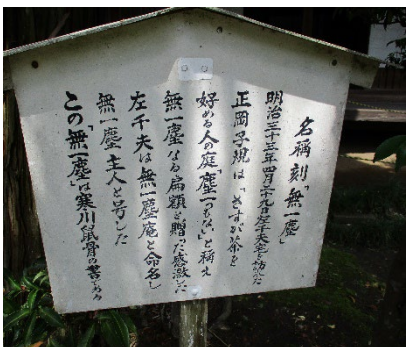 名稱刻「無一塵」
明治三十三年四月二十九日左千夫宅を訪れた
正岡子規は「さすが茶を
好める人の庭「塵一つもない」と称え
無一塵なる扁額を贈った感激した
左千夫は無一塵庵と命名し
無一塵主人と号した
この「無一塵」は寒川鼠骨の書である